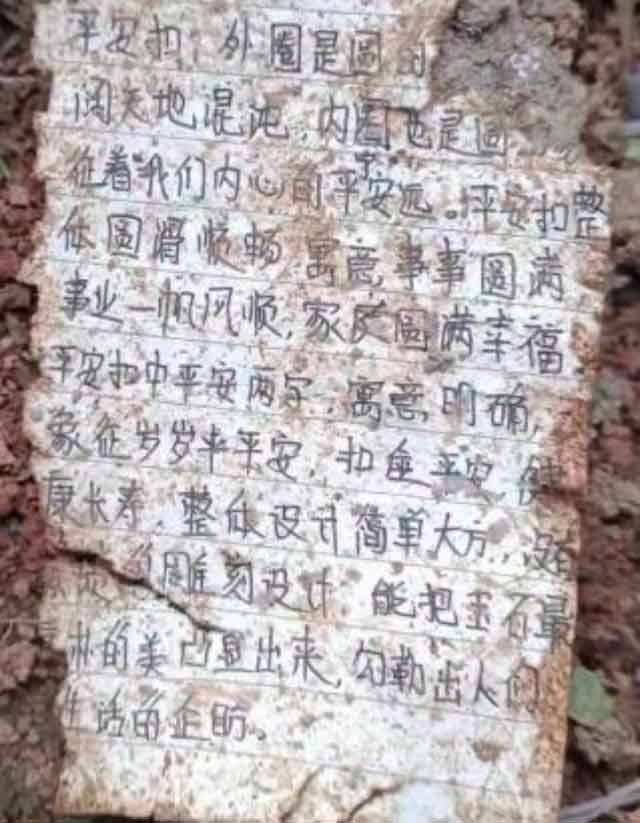 平安扣，外圈是圆的
阔天地混沌，内圈也是圆
征着我们内心的平安宁远。平安扣整
体圆滑顺畅，寓意事事圆满
事业一帆风顺，家庭圆满幸福
平安扣中平安两字，寓意明确，
象征岁岁年平安，扣全平安，健
康长寿，整体设计简单大方，没有
雕刻设计，能把玉石最
朴的美凸显出来，勾勒出人们
生活的企盼。